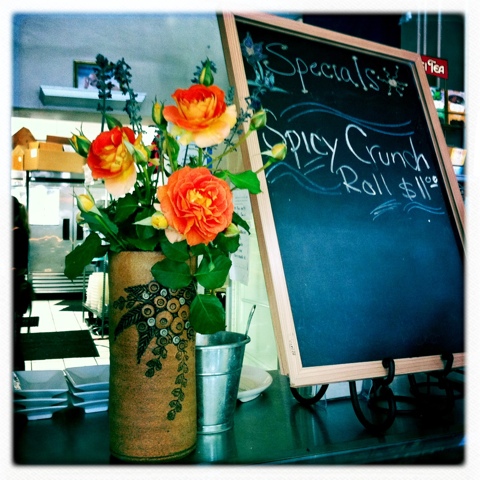 Specials
Spicy Crunch
Roll $11.00
TEA